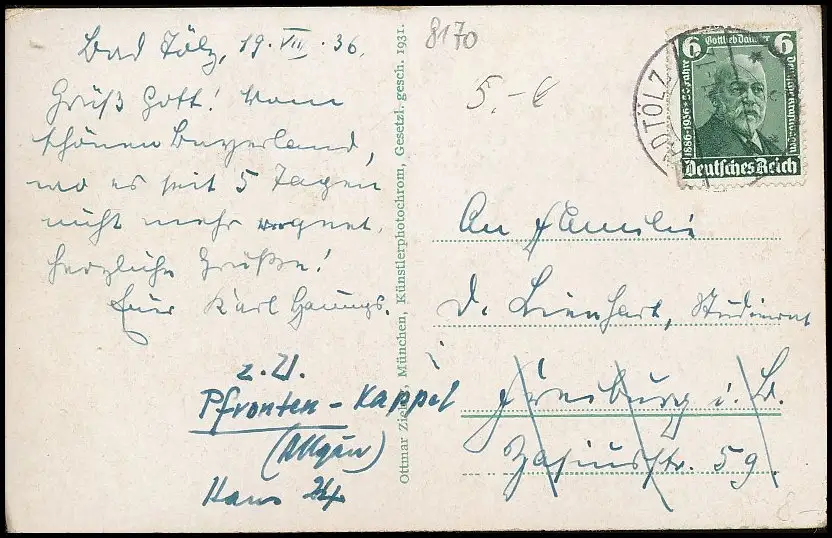 Bad Tölz, 19. VII. 36.
Grüß Gott! Vom
schönen Bayerland,
wo es seit 5 Tagen
nicht mehr regnet.
Herzliche Grüße!
Euer Karl
z. Zt.
Pfronten - Kappel
(Allgäu)
Haus
Ottmar Zieher, München, Künstlerphotochrom, Gesetzl. gesch. 1931.
8170
5.- €
6 Gottlieb Daimler 6
1886-1936 50 Jahre
Deutsches Reich
BAD TÖLZ
An Familie
D. Lienhart, Studienrat
Freiburg i. B.
Zasiusstr. 59.
8-